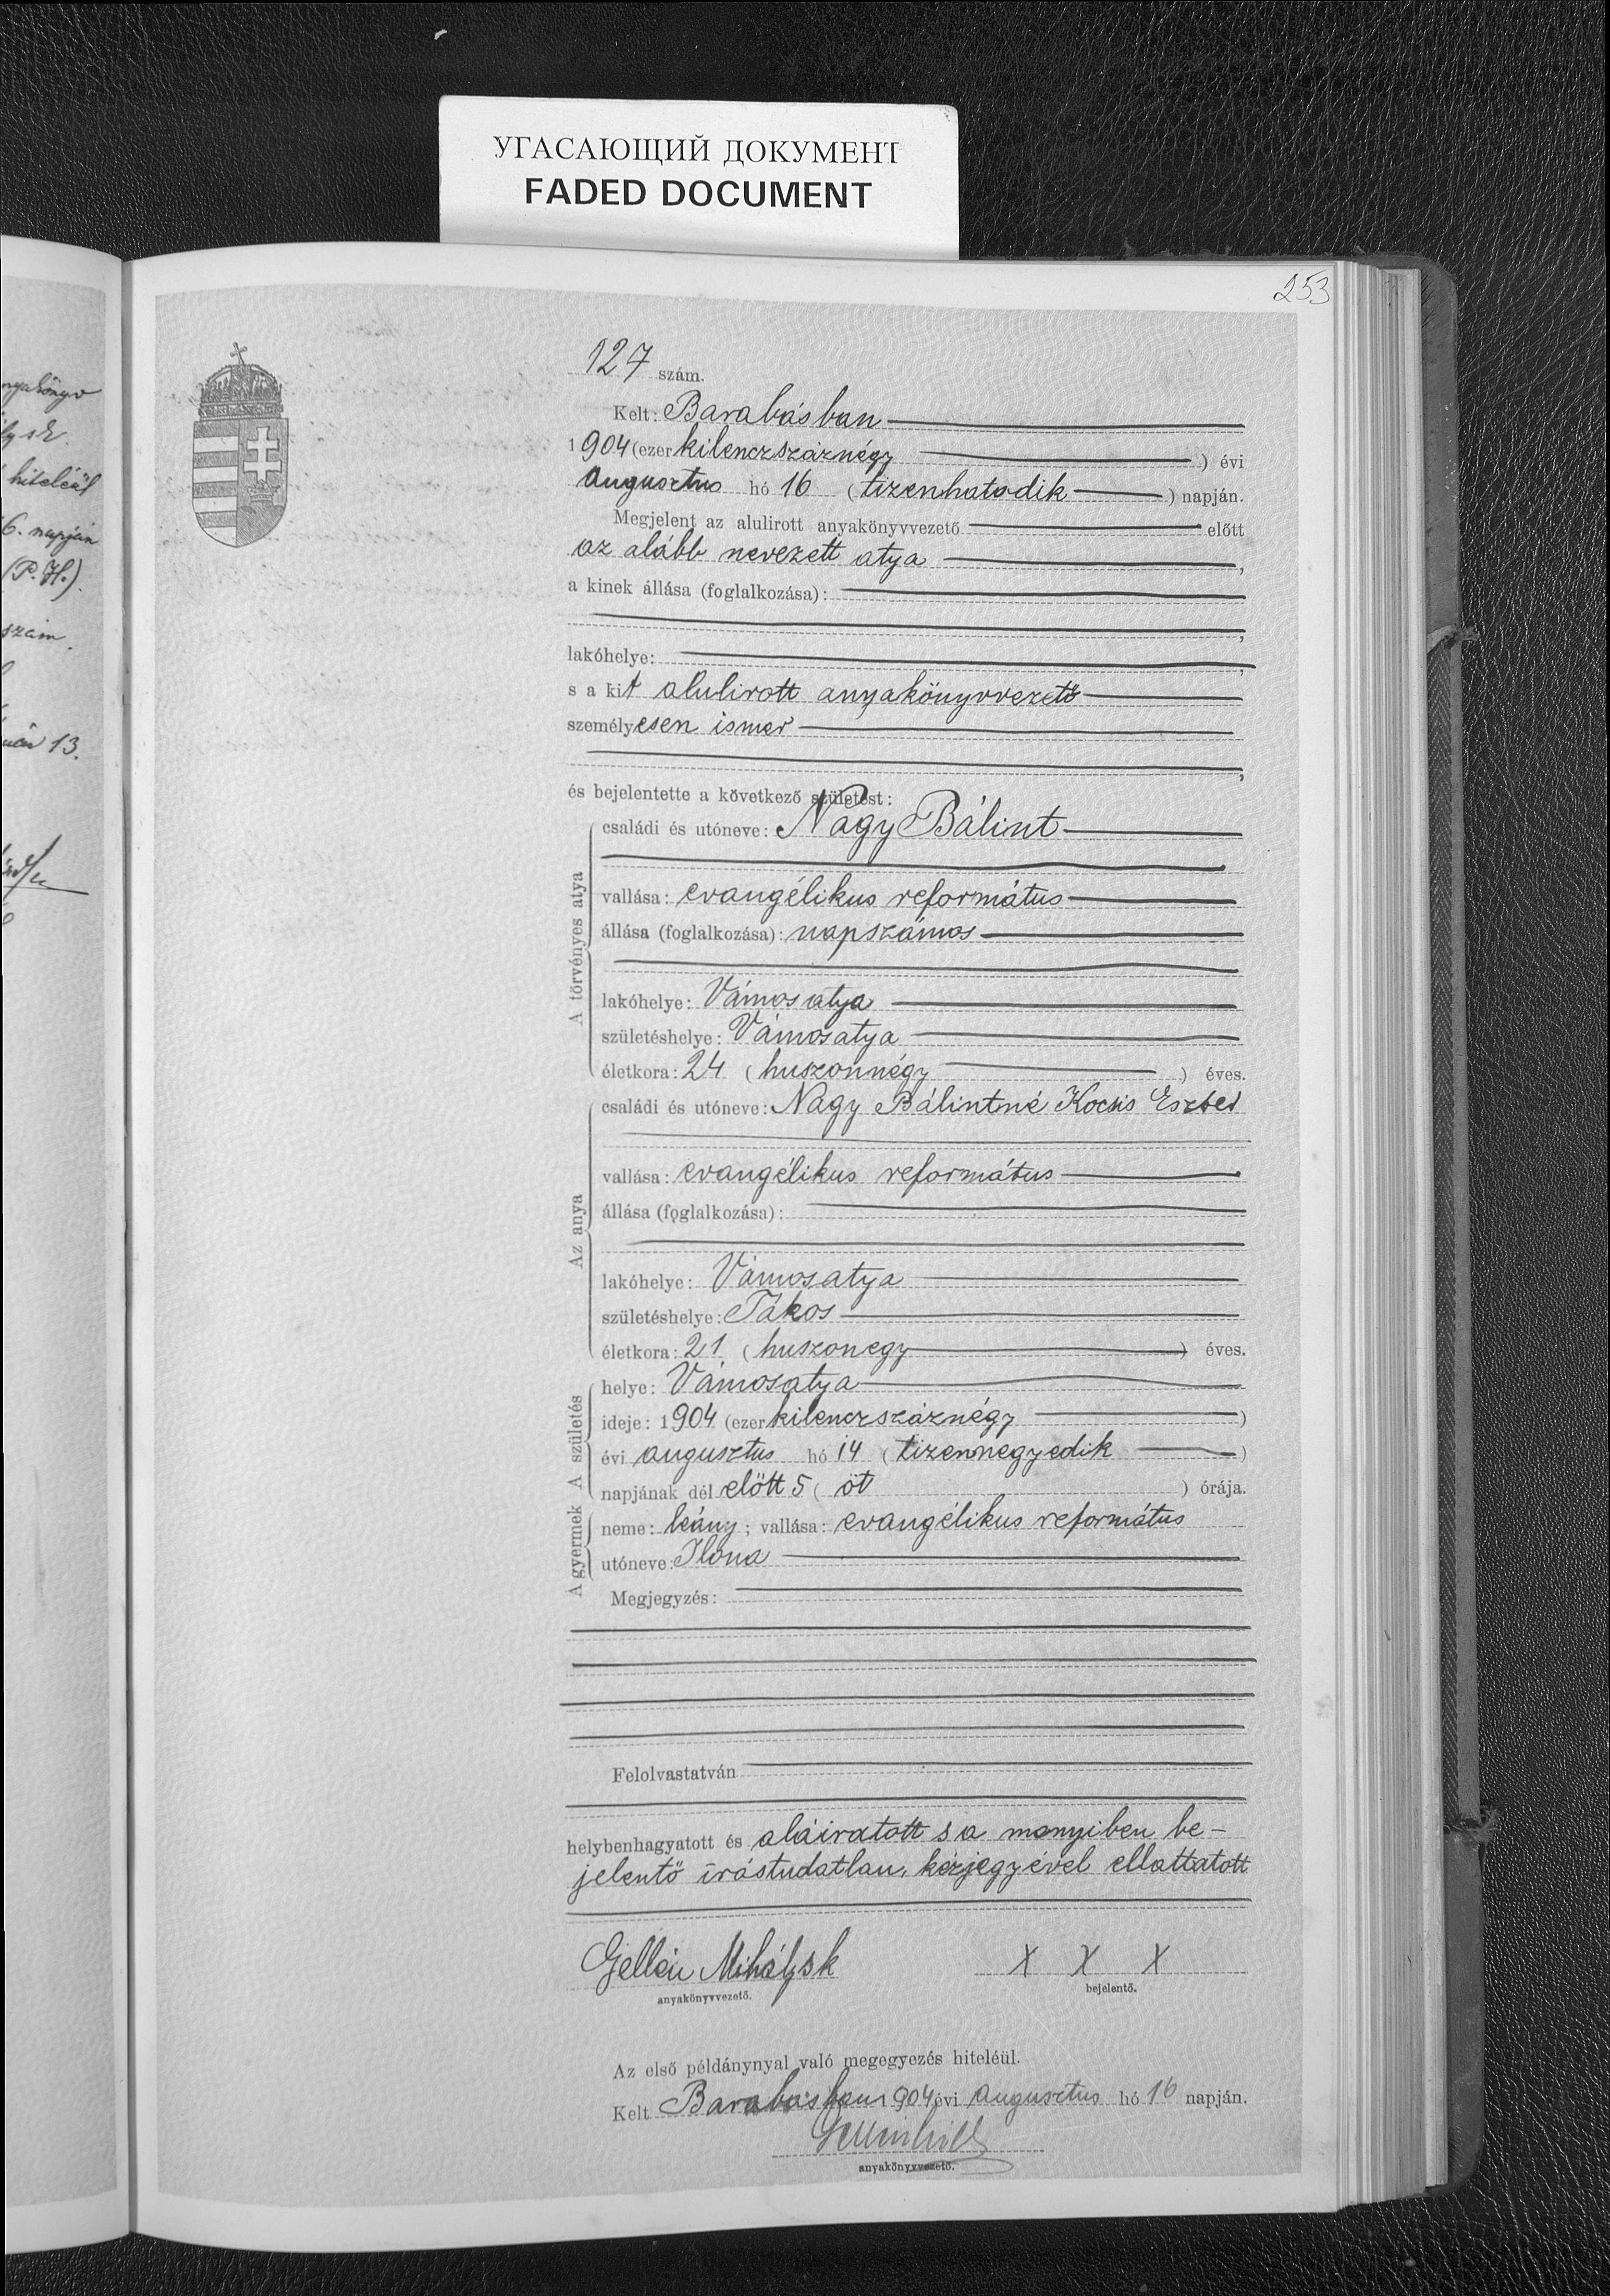 УГАСАЮЩИЙ ДОКУМЕНТ
FADED DOCUMENT
253
hiteléül
6. napján
(P. H.)
szám.
13.
127 szám.
Kelt: Barabásban
1904 (ezer kilenczszáznégy ) évi
augusztus hó 16 (tizenhatodik ) napján.
Megjelent az alulirott anyakönyvvezető előtt
az alább nevezett atya ,
a kinek állása (foglalkozása):
,
lakóhelye: ,
s a kit alulirott anyakönyvvezető
személyesen ismer
,
és bejelentette a következő születést:
A törvényes atya
családi és utóneve: Nagy Bálint
vallása: evangélikus református
állása (foglalkozása): napszámos
lakóhelye: Vámosatya
születéshelye: Vámosatya
életkora: 24 (huszonnégy ) éves.
Az anya
családi és utóneve: Nagy Bálintné Kocsis Eszter
vallása: evangélikus református
állása (foglalkozása):
lakóhelye: Vámosatya
születéshelye: Tákos
életkora: 21 (huszonegy ) éves.
A születés
helye: Vámosatya
ideje: 1904 (ezer kilenczszáznégy )
évi augusztus hó 14 (tizennegyedik )
napjának dél előtt 5 (öt ) órája.
A gyermek
neme: leány; vallása: evangélikus református
utóneve: Ilona
Megjegyzés:
Felolvastatván
helybenhagyatott és aláiratott s a menyiben be-
jelentő irástudatlan, kézjegyével ellattatott
Gellén Mihály sk X X X
anyakönyvvezető. bejelentő.
Az első példánynyal való megegyezés hiteléül.
Kelt Barabásban 1904 évi augusztus hó 16 napján.
anyakönyvvezető.